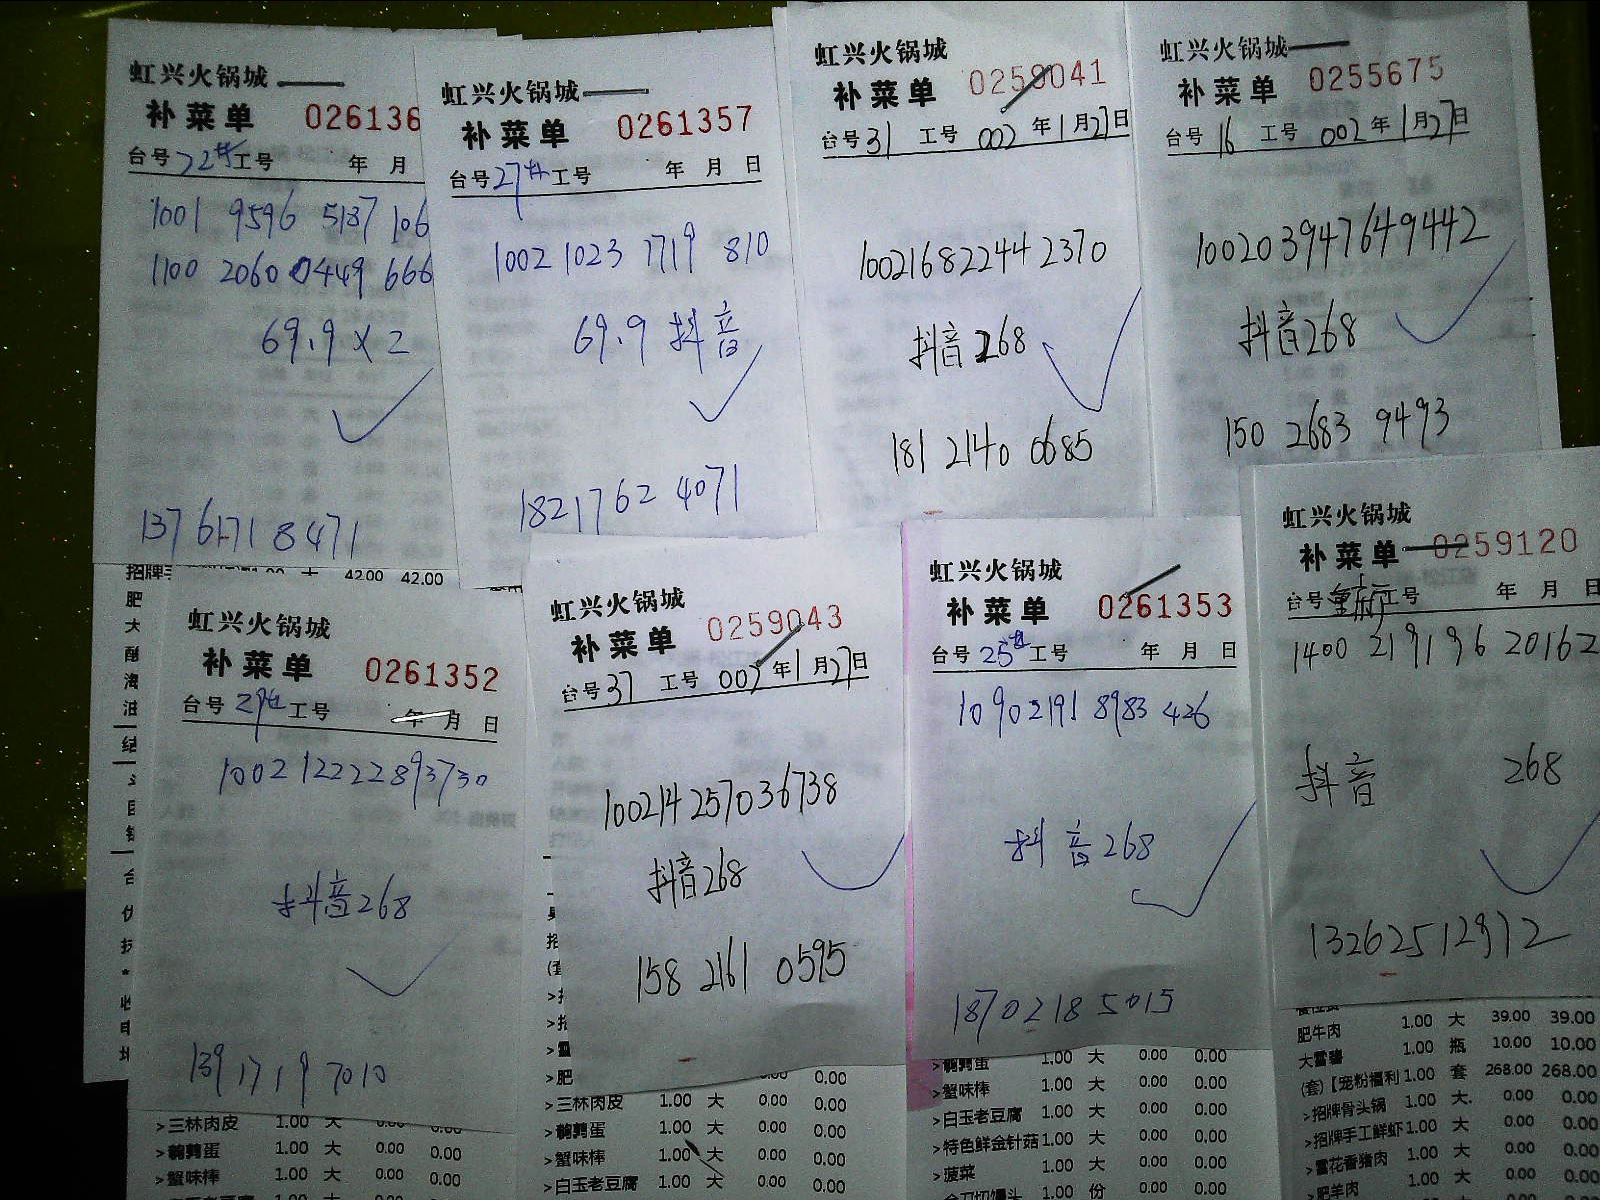 虹兴火锅城
补菜单 026136
台号 22# 工号 年 月
1001 9596 5187 106
1100 2060 0449 666
69.9 x 2
137 6171 8471
虹兴火锅城
补菜单 0261357
台号 27# 工号 年 月 日
1002 1023 1719 810
69.9 抖音
1821762 4071
虹兴火锅城
补菜单 0259041
台号 31 工号 002 年 1 月 27 日
100216822442370
抖音268
181 2140 0685
虹兴火锅城
补菜单 0255675
台号 16 工号 002 年 1 月 27 日
100203947649442
抖音268
150 2683 9493
招牌 42.00 42.00
肥
大
海
油
结
虹兴火锅城
补菜单 0261352
台号 29# 工号 年 月 日
100212222893730
抖音268
139 1719 7010
>三林肉皮 1.00 大 0.00 0.00
>鹌鹑蛋 1.00 大 0.00 0.00
>蟹味棒 1.00 大 0.00 0.00
虹兴火锅城
补菜单 0259043
台号 37 工号 002 年 1 月 27 日
100214257036738
抖音268
158 2161 0595
>肥 0.00 0.00
>三林肉皮 1.00 大 0.00 0.00
>鹌鹑蛋 1.00 大 0.00 0.00
>蟹味棒 1.00 大 0.00 0.00
>白玉老豆腐 1.00 大 0.00 0.00
虹兴火锅城
补菜单 0261353
台号 25# 工号 年 月 日
10902191 8983 426
抖音268
18702185015
>鹌鹑蛋 1.00 大 0.00 0.00
>蟹味棒 1.00 大 0.00 0.00
>白玉老豆腐 1.00 大 0.00 0.00
>特色鲜金针菇 1.00 大 0.00 0.00
>菠菜 1.00 大 0.00 0.00
1.00 份 0.00 0.00
虹兴火锅城
补菜单 0259120
台号 工号 年 月 日
1400 219196 20162
抖音 268
13262512912
肥牛肉 1.00 大 39.00 39.00
大雪碧 1.00 瓶 10.00 10.00
(套)【宠粉福利 1.00 套 268.00 268.00
>招牌骨头锅 1.00 大 0.00 0.00
>招牌手工鲜虾 1.00 大 0.00 0.00
>雪花香猪肉 1.00 大 0.00 0.00
>肥羊肉 1.00 大 0.00 0.00